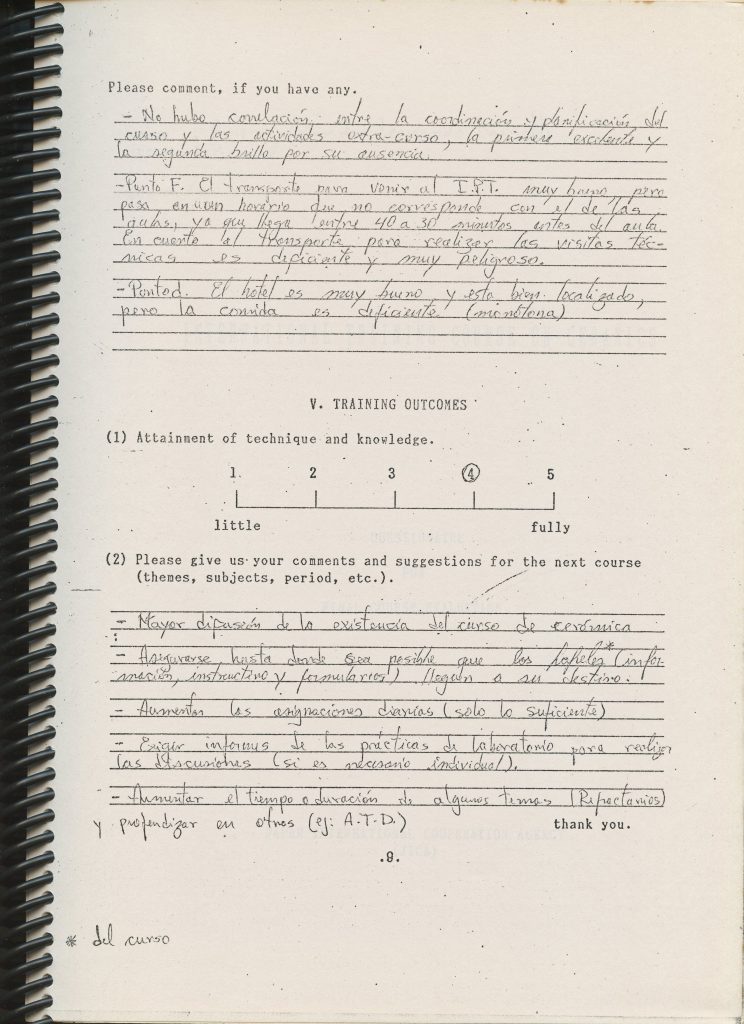 Please comment, if you have any.
- No hubo correlación entre la coordinación y planificación del
curso y las actividades extra-curso, la primera excelente y
la segunda brillo por su ausencia.
- Punto F. El transporte para venir al I.P.T. muy bueno, pero
pasa en un horario que no corresponde con el de las
aulas, ya que llega entre 40 a 30 minutos antes del aula.
En cuanto al transporte para realizar las visitas téc-
nicas es deficiente y muy peligroso.
- Punto d. El hotel es muy bueno y esta bien localizado,
pero la comida es deficiente (monótona)
V. TRAINING OUTCOMES
(1) Attainment of technique and knowledge.
1 2 3 4 5
little fully
(2) Please give us your comments and suggestions for the next course
(themes, subjects, period, etc.).
- Mayor difusión de la existencia del curso de cerámica
- Asegurarse, hasta donde sea posible que los papeles* (infor-
mación, instructivo y formularios) llegan a su destino.
- Aumentar las asignaciones diarias (solo lo suficiente)
- Exigir informes de las prácticas de laboratorio para realizar
las discusiones (si es necesario individual).
- Aumentar el tiempo o duración de algunos temas (Refractarios)
y profundizar en otros (ej: A.T.D.) thank you.
.9.
* del curso